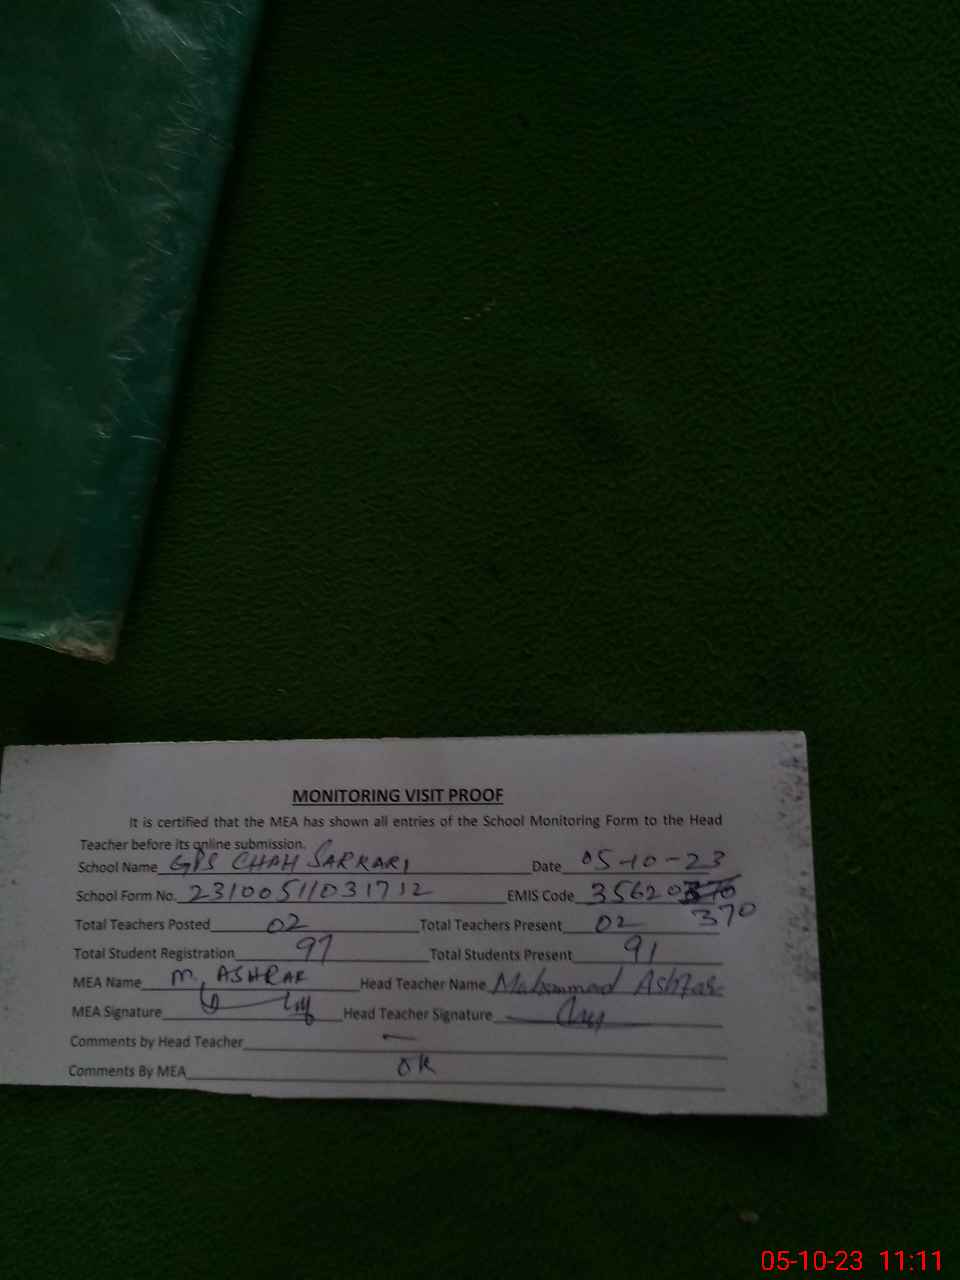 MONITORING VISIT PROOF
It is certified that the MEA has shown all entries of the School Monitoring Form to the Head
Teacher before its online submission.
School Name GPS CHAH SARKARI Date 05-10-23
School Form No. 23100511031712 EMIS Code 35620370
370
Total Teachers Posted 02 Total Teachers Present 02
Total Student Registration 97 Total Students Present 91
MEA Name M. ASHRAF Head Teacher Name Mohammad
MEA Signature Head Teacher Signature
Comments by Head Teacher
Comments By MEA OK
05-10-23 11:11